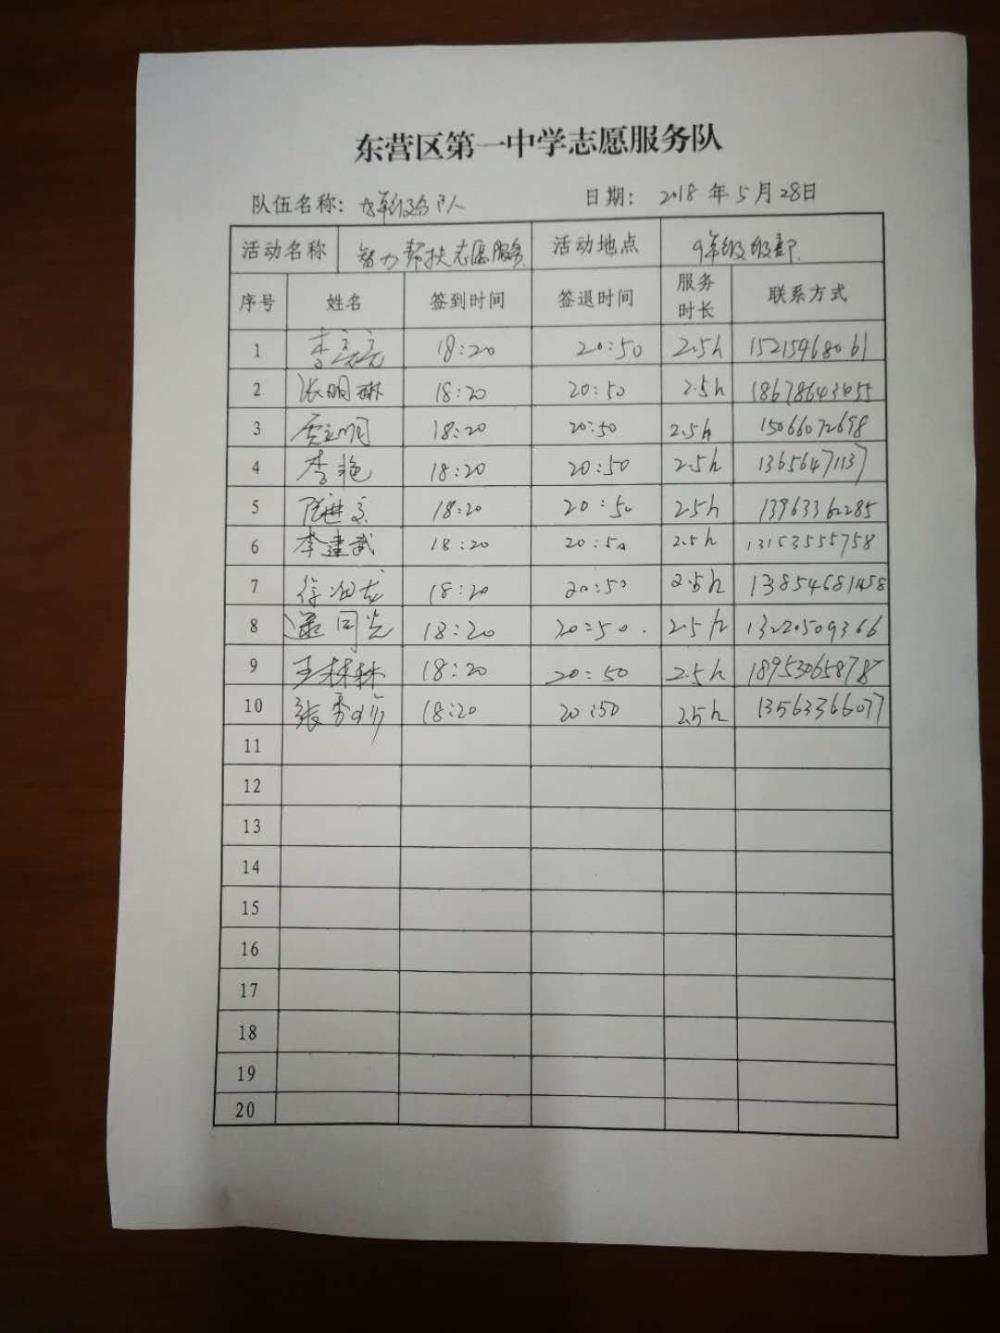 东营区第一中学志愿服务队
队伍名称: 日期: 2018 年 5 月 28日
活动名称 智力帮扶志愿服务 活动地点 9年级级部
序号 姓名 签到时间 签退时间 服务时长 联系方式
1 李亮亮 18:20 20:50 2.5h 15215468061
2 张明琳 18:20 20:50 2.5h 18678643455
3 18:20 20:50 2.5h 15066072698
4 李艳 18:20 20:50 2.5h 13656471137
5 18:20 20:50 2.5h 13963362285
6 李建武 18:20 20:50 2.5h 13153555758
7 18:20 20:50 2.5h 13854681458
8 18:20 20:50. 2.5h 13220509366
9 王林林 18:20 20:50 2.5h
10 18:20 20:50 2.5h 13563366077
11
12
13
14
15
16
17
18
19
20